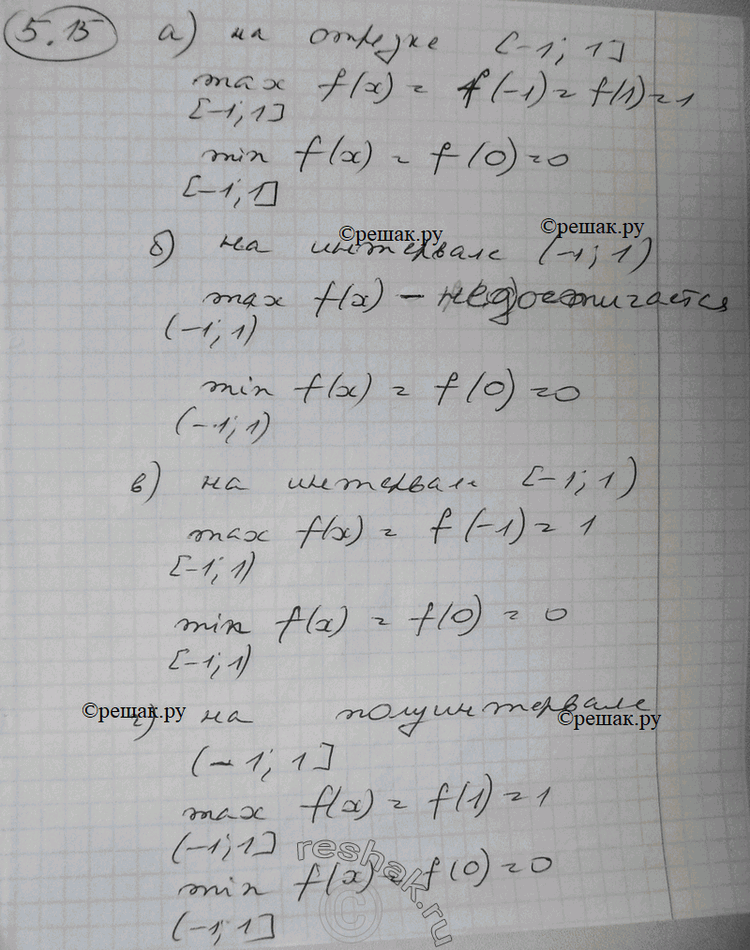 5.15 а) на отрезке [-1; 1]
max f(x) = f(-1) = f(1) = 1
[-1; 1]
min f(x) = f(0) = 0
[-1; 1]
©решак.ру ©решак.ру
б) на интервале (-1; 1)
max f(x) - не достигается
(-1; 1)
min f(x) = f(0) = 0
(-1; 1)
в) на интервале [-1; 1)
max f(x) = f(-1) = 1
[-1; 1)
min f(x) = f(0) = 0
[-1; 1)
©решак.ру
г) на полуинтервале
©решак.ру
(-1; 1]
max f(x) = f(1) = 1
(-1; 1]
min f(x) = f(0) = 0
(-1; 1]
reshak.ru
©